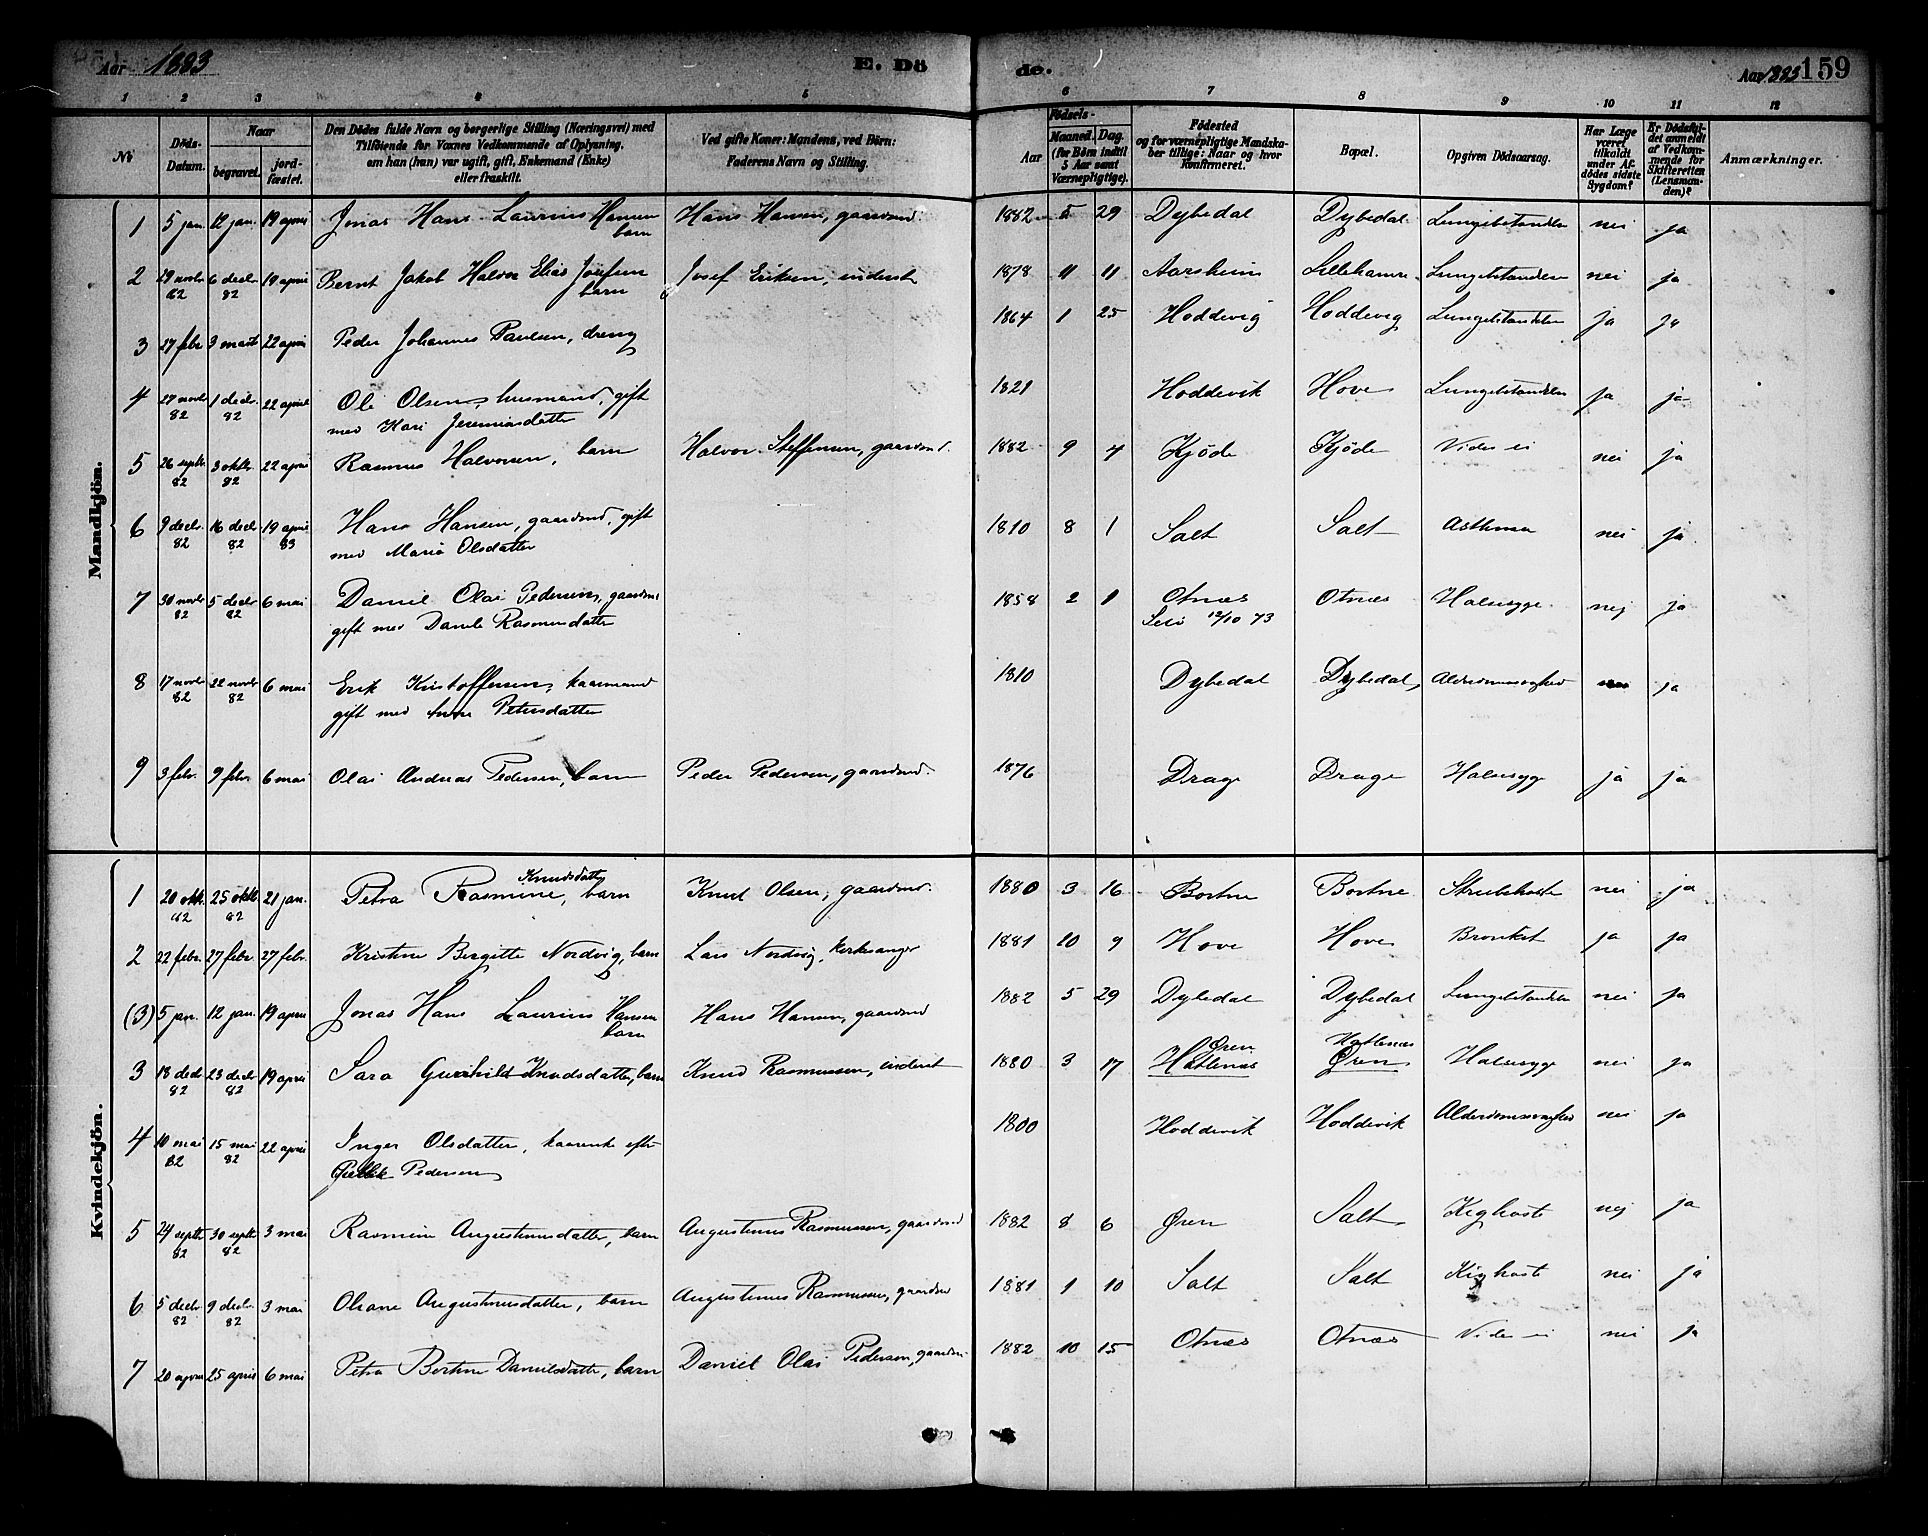 Aar 1883 E. Dö de. Aar 1883 159
1 2 3 4 5 6 7 8 9 10 11 12
No Döds-Datum. Naar begravet. jord-fæstet. Den Dødes fulde Navn og borgerlige Stilling (Næringsvei) med Tilføiende for Voxnes Vedkommende af Oplysning, om han (hun) var ugift, gift, Enkemand (Enke) eller fraskilt. Ved gifte Koner: Mandens, ved Börn: Faderens Navn og Stilling. Aar Födsels- Maaned. Dag. (for Børn indtil 5 Aar samt Værnepligtige). Födested og for værnepligtige Mandskaber tillige: Naar og hvor konfirmeret. Bopæl. Opgiven Dödsaarsag. Har Læge været tilkaldt under Afdödes sidste Sygdom? Er Dödsfaldet anmeldt af Vedkommende for Skifteretten (Lensmanden)? Anmærkninger.
Mandkjön.
1 5 jan. 12 jan. 19 april Jonas Hans Laurius Hansen barn Hans Hansen, gaardmd. 1882 5 29 Dybedal Dybedal Lungebetændelse nei ja
2 29 novbr 82 6 decbr 82 19 april Bernt Jakob Halvor Elias Josefsen barn Josef Eriksen, inderst 1878 11 11 Aarsheim Lillehamre Lungebetændelse nei ja
3 27 febr 3 marts 22 april Peder Johannes Paulsen, dreng 1864 1 25 Hoddevig Hoddevig Lungebetændelse ja ja
4 27 novbr 82 1 decbr. 82 22 april Ole Olsen, husmand, gift
med Kari Jeremiasdatter 1821 Hoddevik Hove Lungebetændelse ja ja
5 26 septbr. 82 3 oktbr. 82 22 april Rasmus Halvorsen, barn Halvor Steffensen, gaardmd. 1882 9 4 Kjöde Kjöde Vides ei nei ja
6 9 decbr. 82 16 decbr. 82 19 april 83 Hans Hansen, gaardmd, gift
med Maria Olsdatter 1810 8 1 Salt Salt Asthma nei ja
7 30 novbr 82 5 decbr 82 6 mai Daniel Olai Pedersen, gaardmd
gift med Danile Rasmusdatter 1858 2 1 Otnæs
Selö 12/10 73 Otnæs Halssyge nej ja
8 17 novbr 82 22 novbr 82 6 mai Erik Kristoffersen, kaarmand
gift med Anne Petersdatter 1810 Dybedal Dybedal, Alderdomssvaghed ja
9 3 febr. 9 febr. 6 mai Olai Andreas Pedersen, barn Peder Pedersen, gaardmd. 1876 Drage Drage Halssyge ja ja
Kvindekjön.
1 20 oktbr. 82 25 oktbr 82 21 jan. Petra Rasmine Knudsdatter, barn Knud Olsen, gaardmd. 1880 3 16 Bortne Bortne Strubehoste nei ja
2 22 febr. 27 febr. 27 febr. Kristine Birgitte Nordvig, barn Lars Nordvig, kirkesanger 1881 10 9 Hove Hove Bronkit ja ja
(3) 5 jan. 12 jan. 19 april Jonas Hans Laurius Hansen barn Hans Hansen, gaardmd 1882 5 29 Dybedal Dybedal Lungebetændelse nei ja
3 18 decbr 82 23 decbr 82 19 april Sara Gunhild Knudsdatter, barn Knud Rasmussen, inderst 1880 3 17 Øren Hatlenæs Hatlenæs Øren Halssyge nei ja
4 10 mai 82 15 mai 82 22 april Inger Olsdatter, kaarenke efter
Pedersen 1800 Hoddevik Hoddevik Alderdomssvaghed nei ja
5 24 septbr 82 30 septbr 82 3 mai Rasmine Augustinusdatter, barn Augustinus Rasmussen, gaardmd 1882 8 6 Øren Salt Kighoste nej ja
6 5 decbr 82 9 decbr 82 3 mai Oliane Augustinusdatter, barn Augustinus Rasmussen, gaardmd 1881 1 10 Salt Salt Kighoste nei ja
7 20 april 25 april 6 mai Petra Bertine Danielsdatter, barn Daniel Olai Pedersen, gaardmd 1882 10 15 Otnæs Otnæs Vides ei nei ja